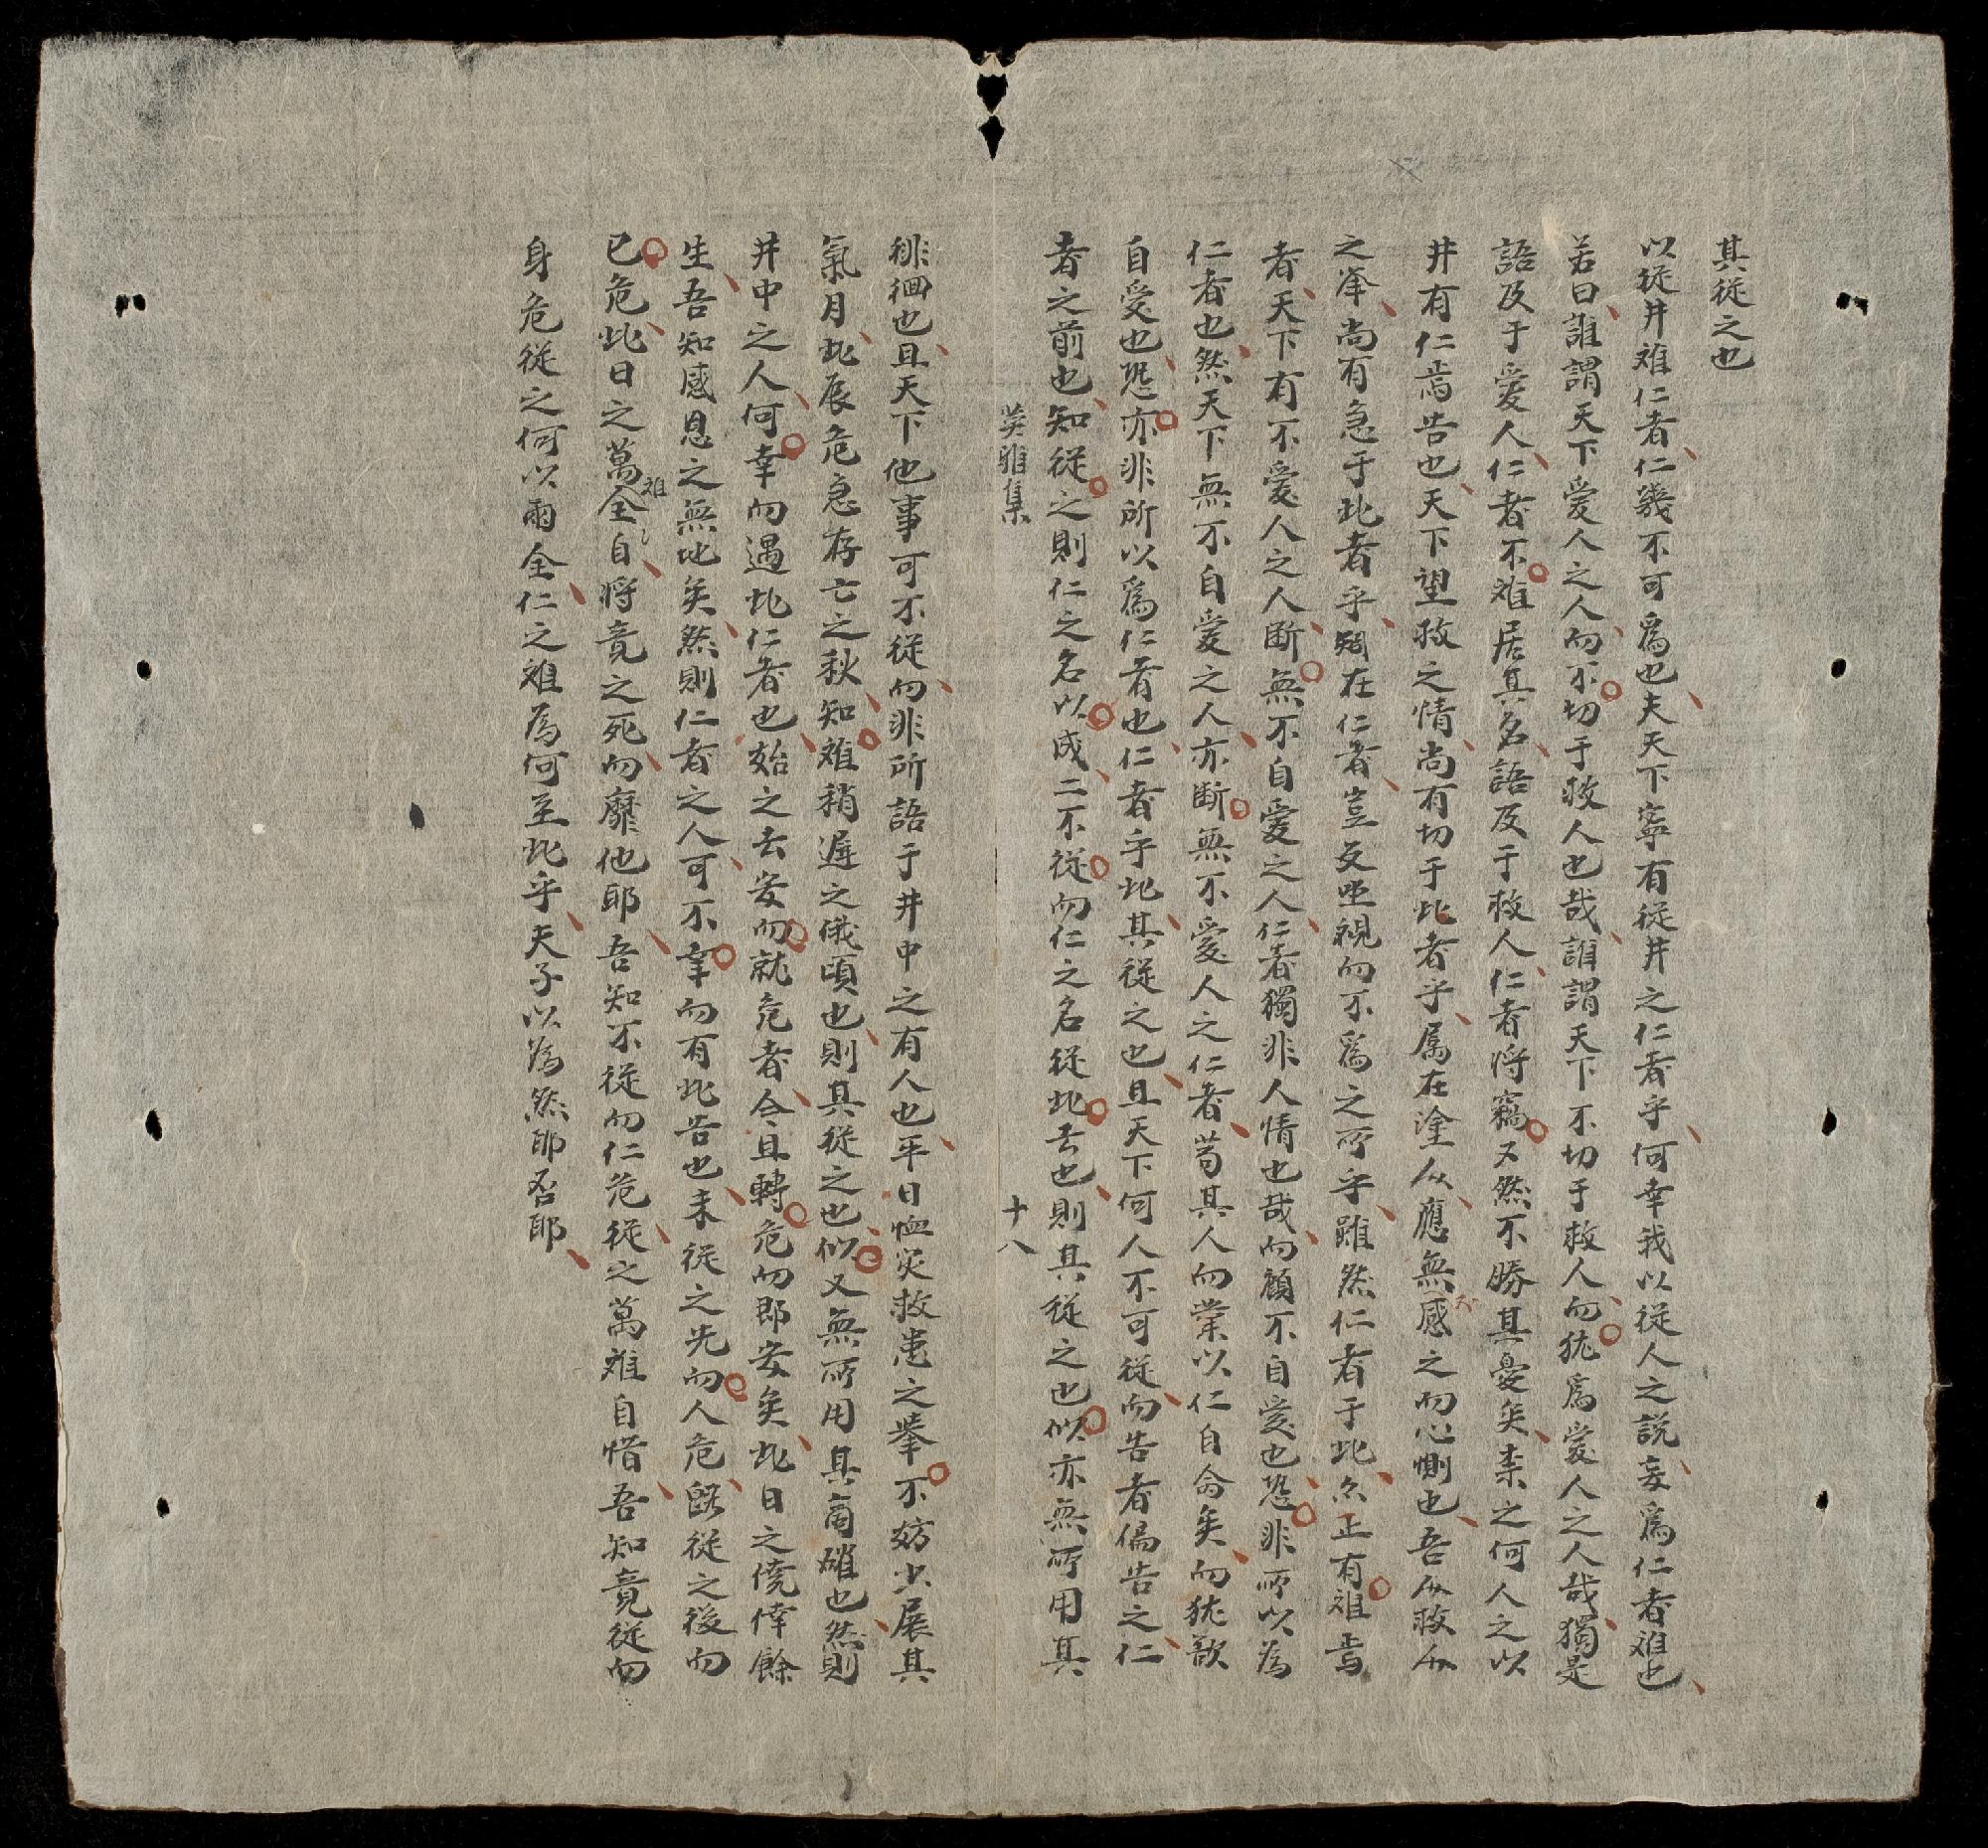 其從之也
以從井难仁者仁幾不可爲也夫天下寧有從井之仁者乎何幸我以從人之説妄爲仁者难也
若曰誰謂天下愛人之人而不切于救人也哉誰謂天下不切于救人而犹爲愛人之人哉獨是
語及于爱人仁者不难居其名語及于救人仁者将竊又然不勝其憂矣柰之何人之以
井有仁焉告也天下望救之情尚有切于此者乎属在塗人應無感之而心惻也吾人救人
之举尚有急于此者乎矧在仁者豈反坐視而不爲之所乎雖然仁者于此亦正有难焉
者天下有不爱人之人断無不自爱之人仁者獨非人情也哉而顧不自爱也恐非所以为
仁者也然天下無不自爱之人亦断無不愛人之仁者苟其人而業以仁自命矣而犹歆
自受也恐亦非所以爲仁者也仁者乎此其從之也且天下何人不可從而告者偏告之仁
者之前也知從之則仁之名以成二不從而仁之名從此去也則其從之也似亦無所用其
英雅集 十八
徘徊也且天下他事可不從而非所語于井中之有人也平日恤灾救患之举不妨少展其
氣月此辰危急存亡之秋知难稍遲之俄頃也則其從之也似又無所用其商確也然則
井中之人何幸而遇此仁者也始之去安而就危者今且轉危而即安矣此日之僥倖餘
生吾知感恩之無地矣然則仁者之人可不幸而有此告也未從之先而人危既從之後而
已危此日之萬全难自将竟之死而靡他耶吾知不從而仁危從之萬难自惜吾知竟從而
身危從之何以兩全仁之难为何至此乎夫子以为然耶否耶